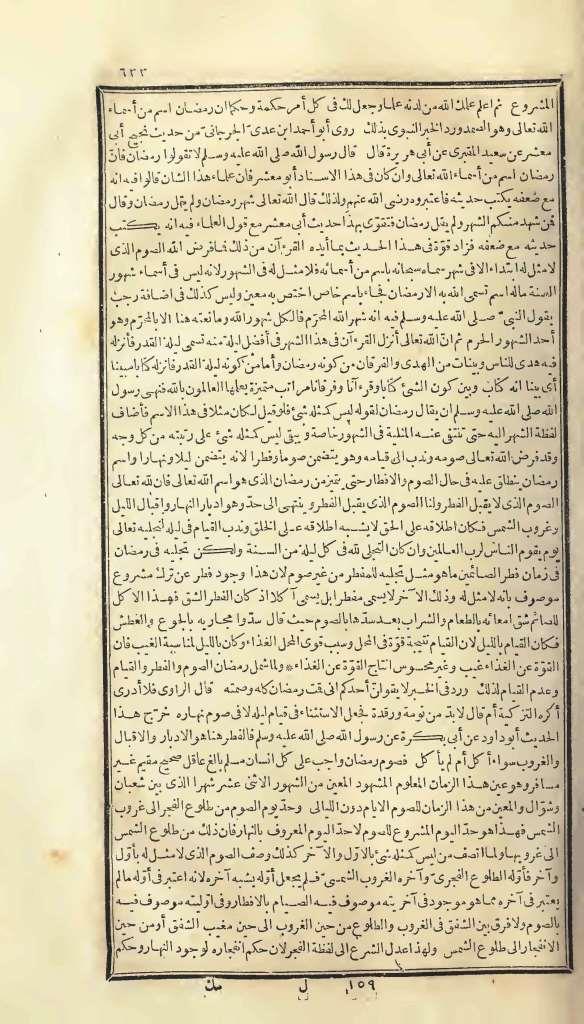 ٦٣٣
المشروع ثم اعلم علمك الله من لدنه علما وجعل لك فى كل أمر حكمة وحكما ان رمضان اسم من أسماء
الله تعالى وهو الصمد ورد الخبر النبوى بذلك روى أبو أحمد ابن عدى الجرجانى من حديث نجيح أبى
معشر عن سعيد المقبرى عن أبى هريرة قال قال رسول الله صلى الله عليه وسلم لا تقولوا رمضان فان
رمضان اسم من أسماء الله تعالى وان كان فى هذا الاسناد أبو معشر فان علماء هذا الشان قالوا فيه انه
مع ضعفه يكتب حديثه فاعتبروه رضى الله عنهم ولذلك قال الله تعالى شهر رمضان ولم يقل رمضان وقال
فمن شهد منكم الشهر ولم يقل رمضان فتقوى بهذا حديث أبى معشر مع قول العلماء فيه انه يكتب
حديثه مع ضعفه فزاد قوة فى هذا الحديث بما أيده القرءآن من ذلك فما فرض الله الصوم الذى
لا مثل له ابتداء الا فى شهر سماه سبحانه باسم من أسمائه فلا مثل له فى الشهور لانه ليس فى أسماء شهور
السنة ماله اسم تسمى الله به الا رمضان فجاء باسم خاص اختص به معين وليس كذلك فى اضافة رجب
يقول النبى صلى الله عليه وسلم فيه انه شهر الله المحرم فالكل شهور الله وما نعته هنا الا بالمحرم وهو
أحد الشهور الحرم ثم ان الله تعالى أنزل القرءآن فى هذا الشهر فى أفضل ليلة منه تسمى ليلة القدر فأنزله
فيه هدى للناس وبينات من الهدى والفرقان من كونه رمضان وأما من كونه ليلة القدر فأنزله كتابا مبينا
أى بينا انه كتاب وبين كون الشئ كتابا وقرءآنا وفرقانا مراتب متميزة يعلمها العالمون بالله فنهى رسول
الله صلى الله عليه وسلم ان يقال رمضان لقوله ليس كمثله شئ فلو قيل لكان مثلا فى هذا الاسم فأضاف
لفظة الشهر اليه حتى تنتفى عنه المثلية فى الشهور خاصة ويبقى ليس كمثله شئ على رتبته من كل وجه
وقد فرض الله تعالى صومه وندب الى قيامه وهو يتضمن صوما وفطرا لانه يتضمن ليلا ونهارا واسم
رمضان ينطلق عليه فى حال الصوم والافطار حتى يتميز من رمضان الذى هو اسم الله تعالى فان لله تعالى
الصوم الذى لا يقبل الفطر ولنا الصوم الذى يقبل الفطر وينتهى الى حد وهو ادبار النهار واقبال الليل
وغروب الشمس فكان اطلاقه على الحق لا يشبه اطلاقه على الخلق وندب القيام فى ليله لتجليه تعالى
يوم يقوم الناس لرب العالمين وان كان التجلى لله فى كل ليلة من السنة ولكن تجليه فى رمضان
فى زمان فطر الصائمين ما هو مثل تجليه للمفطر من غير صوم لان هذا وجود فطر عن ترك مشروع
موصوف بانه لا مثل له وذلك الآخر لا يسمى مفطرا بل يسمى آكلا اذ كان الفطر الشق فهذا الاكل
للصائم شق امعائه بالطعام والشراب بعد سدها بالصوم حيث قال سدوا مجاريه بالجوع والعطش
فكان القيام بالليل لان القيام نتيجة قوة فى المحل وسبب قوى المحل الغذاء وكان بالليل لمناسبة الغيب فان
القوة عن الغذاء غيب وغير محسوس انتاج القوة عن الغذاء * ولما شمل رمضان الصوم والفطر والقيام
وعدم القيام لذلك ورد فى الخبر لا يقولن أحدكم انى قمت رمضان كله وصمته قال الراوى فلا أدرى
أكره التزكية أم قال لا بد من نومة ورقدة فجعل الاستثناء فى قيام ليله لا فى صوم نهاره خرّج هذا
الحديث أبو داود عن أبى بكرة عن رسول الله صلى الله عليه وسلم فالفطر هنا هو الادبار والاقبال
والغروب سواء أكل أم لم يأكل فصوم رمضان واجب على كل انسان مسلم بالغ عاقل صحيح مقيم غير
مسافر وهو عين هذا الزمان المعلوم المشهود المعين من الشهور الاثنى عشر شهرا الذى بين شعبان
وشوال والمعين من هذا الزمان للصوم الايام دون الليالى وحد يوم الصوم من طلوع الفجر الى غروب
الشمس فهذا هو حد اليوم المشروع للصوم لا حد اليوم المعروف بالنهار فان ذلك من طلوع الشمس
الى غروبها ولما اتصف من ليس كمثله شئ بالاول والآخر كذلك وصف الصوم الذى لا مثل له بأول
وآخر فأوله الطلوع الفجرى وآخره الغروب الشمسى فلم يجعل أوله يشبه آخره لانه اعتبر فى أوله مالم
يعتبر فى آخره مما هو موجود فى آخريته موصوف فيه الصيام بالافطار وفى اوليته موصوف فيه
بالصوم ولا فرق بين الشفق فى الغروب والطلوع من حين الغروب الى حين مغيب الشفق أو من حين
الانفجار الى طلوع الشمس ولهذا عدل الشرع الى لفظة الفجر لان حكم انفجاره لوجود النهار وحكم
١٥٩ ل مك